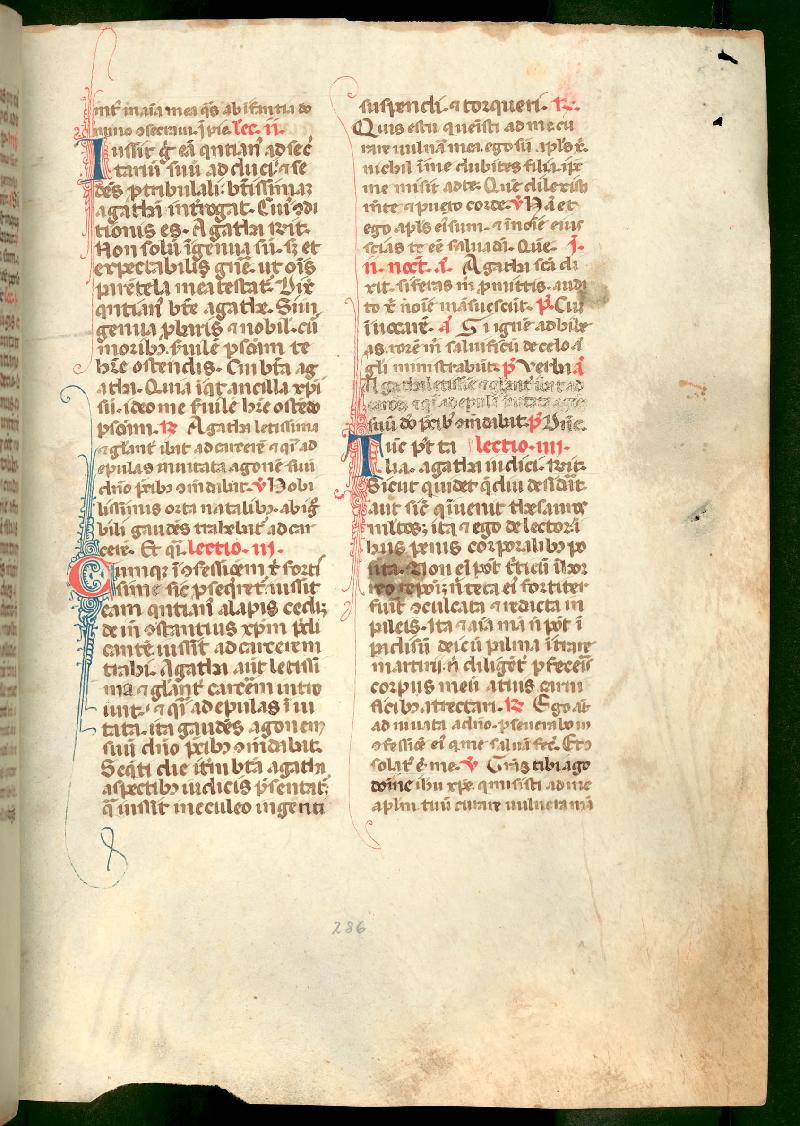 mr̄ maīa mea q̄s ab ifantia do
mino ɔsecraui. īp̄ia lec. ii.
Iussit ḡ eā qntian᷒ ad sec̄
tariū suū adduci. ⁊ se
dēs p̱tribulali. bt̄issimaʒ
agathā īntrogat. Cui᷒ ɔdi
tionis es. Agatha dix̄.
Non solū īgenua sū. sꝫ et
expectabilis gn̄e. ut oīs
parētela mea testat᷑. Dix̄
qntian᷒ bt̄e agathe. Si in
genua p̄baris ⁊ nobil᷒. cū
moribꝫ s̄uilē p̱sonā te
h̄re ostendis. Cui bt̄a ag
atha. Quia īq̇t ancilla xp̄i
sū. ideo me s̄uilē h̄re ostēdo
p̱sonā. R̄ Agatha letissima
⁊ glant̄ ibat ad carcerē ⁊ q̄i ad
epulas inuitata agonē suū
dn̄o p̄cibꝫ ɔmēdabat. ꝟ Nobi
lissimis orta natalibꝫ. ab iḡ
bili gaudēs trahebat᷑ ad car
cerē. Et q̄i. lectio. iii.
Cumqꝫ ī ɔfessiōem x̄ forti
ssime sic p̱seq̄ret᷑. iussit
eam qntian᷒ alapis cedi;
deīn ɔstantius xp̄m p̄di
cantē iussit ad carcerem
trahi. Agatha aūt letissi
ma ⁊ glant̄ carcērm intro
iuit. ⁊ q̄i ad epulas īui
tata. ita gaudēs agonem
suū dn̄o p̄cibꝫ ɔmēdabat.
Seq̄ti die itm̄ bt̄a agatha
aspectibꝫ iudicis p̄sentat᷑;
q̄ iussit in eculeo ingenti
suspendi. ⁊ torqueri. R̄.
Quis es tu qui uenisti ad me cu
rare uulnā mea. ego sū apl̄s x̄.
nichil ī me dubites filia. ip̄e
me misit ad te. Quē dilexisti
mēte ⁊ puro corde. ꝟ Nā et
ego apl̄s ei᷒ sum. ⁊ ī noīe ei᷒
scias te eē saluādā. Quē. ī.
ii. noct̄. a᷑. Agatha sc̄a di
xit. si feras m̄ p̱mittis. audi
to x̄ noīe mansuescūt. p̄. Cū
īuocarē. a᷑ Si ignē adhibe
as. rorē m̄ saluificū de celo ā
gli ministrabūt. p̄. Verba a᷑
Agatha letissīe ⁊ glant̄ ibat ad
carcerē ⁊ q̄i ad epulas īuitata agōē
suū dō p̄cibꝫ ɔmēdabat. p̄ Dn̄e.
Tūc p̄r ta lectio. iiii.
lia. agatha iudici. dix̄.
Sicut quidē q̄ diu desidāt.
aut sic̄ q̇ īuenit thesauros
mltos; ita ⁊ ego delectorī
hiis penis corporalibꝫ po
sita. Non eī pōt t̄ticū ī hor
reo repoī; n̄ teca ei᷒ fortiter
fuīt ɔculcata ⁊ redicta in
paleis. Ita ⁊ aīa mā n̄ pōt ī
padisū dei cū palma ītrare
martirii. n̄ diligēt᷑ p̱feceīs
corpus meū a tuis carni
ficibꝫ atrectari. R̄ Ego āt
adiuuata a dn̄o. p̱seuerabo in
ɔfessiōe ei᷒ q̇ me saluā fec̄. Et ɔ
solat᷒ ē me. ꝟ Gr̄as tibi ago
domine ihu xp̄e. q̇ misisti ad me
aplm̄ tuū curare uulnera mā
286